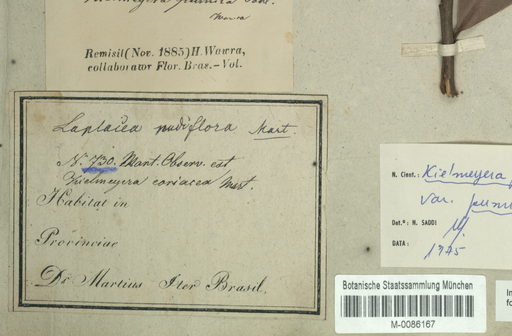 Kielmeyera pumila Pohl.
Wawra
Remisit (Nov. 1885) H. Wawra,
collaborator Flor. Bras. - Vol.
Laplacea nudiflora Mart.
N. 730. Mart. Observ. est
Kielmeyera coriacea Mart.
Habitat in
Provinciae
Dr Martius Iter Brasil.
N. Cient.: Kielmeyera
var.
Det.ª: N. SADDI
DATA: 1975
Botanische Staatssammlung München
M-0086167